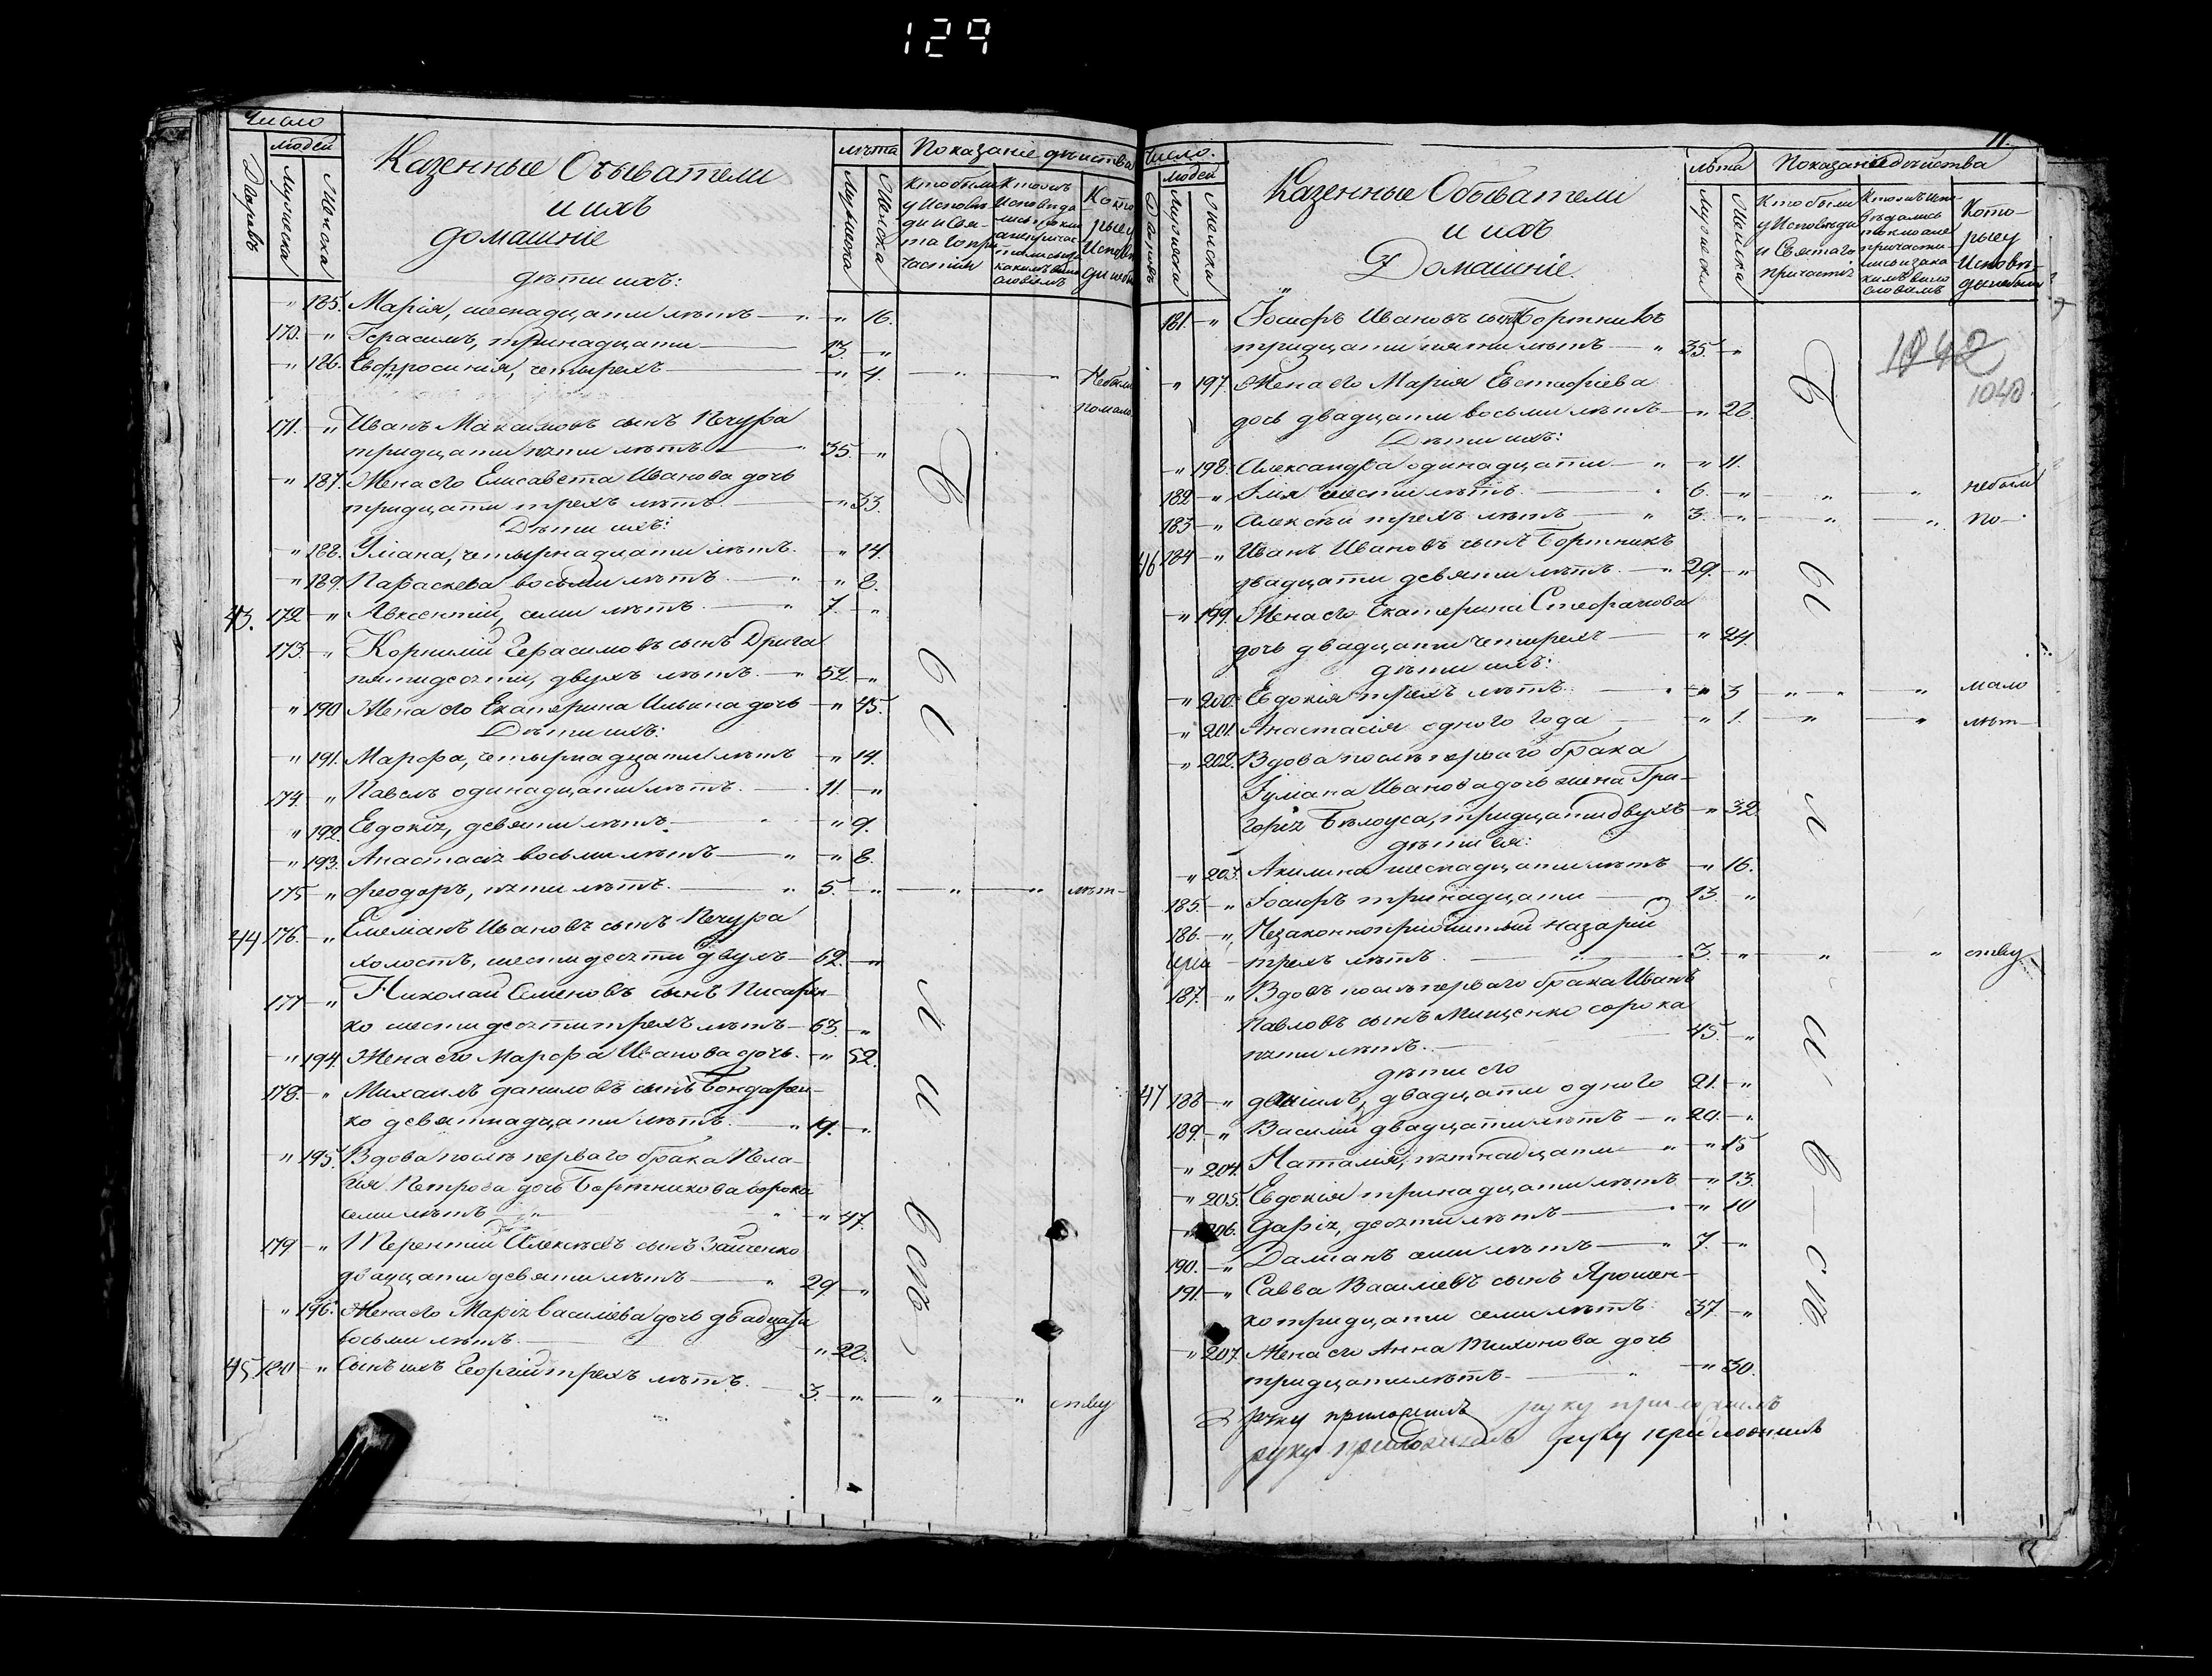 129
Число
людей
Дворовъ
Мужеска
Женска
Казенные Обыватели
и ихъ
домашніе
дѣти ихъ:
лѣта
Мужеска
Женска
Показаніе дѣйства
Кто были
у Исповѣ
ди и Свя-
таго при
частія
" 185. Марія, шеснадцати лѣтъ — " 16.
170. " Герасимъ, тринадцати — 13. "
" 186. Евфросинія, четырехъ — " 4. " " Небыли
помало
171. " Иванъ Максимовъ сынъ Печура
тридцати пяти лѣтъ. 35. "
" 187. Жена его Елисавета Иванова дочь
тридцати трехъ лѣтъ. — " 33
Дѣти ихъ:
" 188. Уліана, четырнадцати лѣтъ. — " 14.
" 189. Параскева восьми лѣтъ. — " 8.
43. 172 " Авксентій, семи лѣтъ. — 7. "
173. " Корнилій Герасимовъ сынъ Дрига
пятидесяти, двухъ лѣтъ. — 52. "
" 190 Жена его Екатерина Ильина дочь — " 45.
Дѣти ихъ:
" 191. Марфа, четырнадцати лѣтъ — " 14.
174. " Павелъ одинадцати лѣтъ. — 11. "
" 192. Евдокія, девяти лѣтъ. — " 9.
" 193. Анастасія восьми лѣтъ — " 8.
175 " Феодоръ, пяти лѣтъ. — 5. " " " лѣт-
44 176. " Емеліанъ Ивановъ сынъ Печура
холостъ, шестидесяти двухъ — 62. "
177 " Николай Семеновъ сынъ Писарен-
ко шестидесяти трехъ лѣтъ — 63. "
" 194. Жена его Марфа Иванова дочь. — " 52.
178. " Михаилъ Даниловъ сынъ Бондарен-
ко девятнадцати лѣтъ. — 19. "
" 195. Вдова послѣ перваго брака Пела-
гія Петрова дочь Бортникова сорока
семи лѣтъ — " 47.
179 " Терентій Алексѣевъ сынъ
двадцати девяти лѣтъ — 29 "
" 196. Жена его Марія Васильева дочь двадцати
восьми лѣтъ. — " 28.
45. 180 " Сынъ ихъ Георгій трехъ лѣтъ. — 3. " " " ству
Б
ы
л
и
всѣ
11.
Число.
людей
Дворовъ
Мужеска
Женска
Казенные Обыватели
и ихъ
Домашніе.
лѣта
Мужеска
Женска
Показаніе дѣйства
Кто были
у Исповѣди
и Святаго
причастія
Кото-
рые у
Исповѣ-
ди небыли
1042
1040.
181. " Іосифъ Ивановъ сынъ Бортникъ
тридцати пяти лѣтъ — 35. "
" 197 Жена его Марія Евстафіева
дочь двадцати восьми лѣтъ — " 28.
Дѣти ихъ:
" 198. Александра одинадцати — " 11.
182 " Илія шести лѣтъ. — 6. " " " небыли
183 " Алексѣй трехъ лѣтъ — 3. " " " по-
46 184 " Иванъ Ивановъ сынъ Бортникъ
двадцати девяти лѣтъ. — 29. "
" 199. Жена его Екатерина Стефанова
дочь двадцати четырехъ — " 24.
дѣти ихъ:
" 200. Евдокія трехъ лѣтъ. — " 3 " " мало
" 201. Анастасія одного года — " 1. " " лѣт-
" 202. Вдова послѣ перваго брака
Іуліана Иванова дочь жена Гри-
горія Бѣлоуса, тридцати двухъ — " 32.
дѣти ея:
" 203. Акилина шеснадцати лѣтъ — " 16.
185. " Іосифъ тринадцати — 13. "
186. " Незаконноприжитый Назарій
трехъ лѣтъ. — 3. " " " ству
187. " Вдовъ послѣ перваго брака Иванъ
Павловъ сынъ Мищенко сорока
пяти лѣтъ. — 45. "
дѣти его
47 188 " Даніилъ, двадцати одного 21. "
189. " Василій двадцати лѣтъ — 20. "
" 204. Наталія, пятнадцати — " 15
" 205. Евдокія тринадцати лѣтъ — " 13.
" 206. Дарія, десяти лѣтъ — " 10
190. " Даміанъ семи лѣтъ — 7. "
191. " Савва Василіевъ сынъ Ярошен-
ко тридцати семи лѣтъ. 37. "
" 207. Жена его Анна Тихонова дочь
тридцати лѣтъ. — " 30.
Б
ы
л
и
в—сѣ
руку приложилъ руку приложилъ
руку приложилъ руку приложилъ